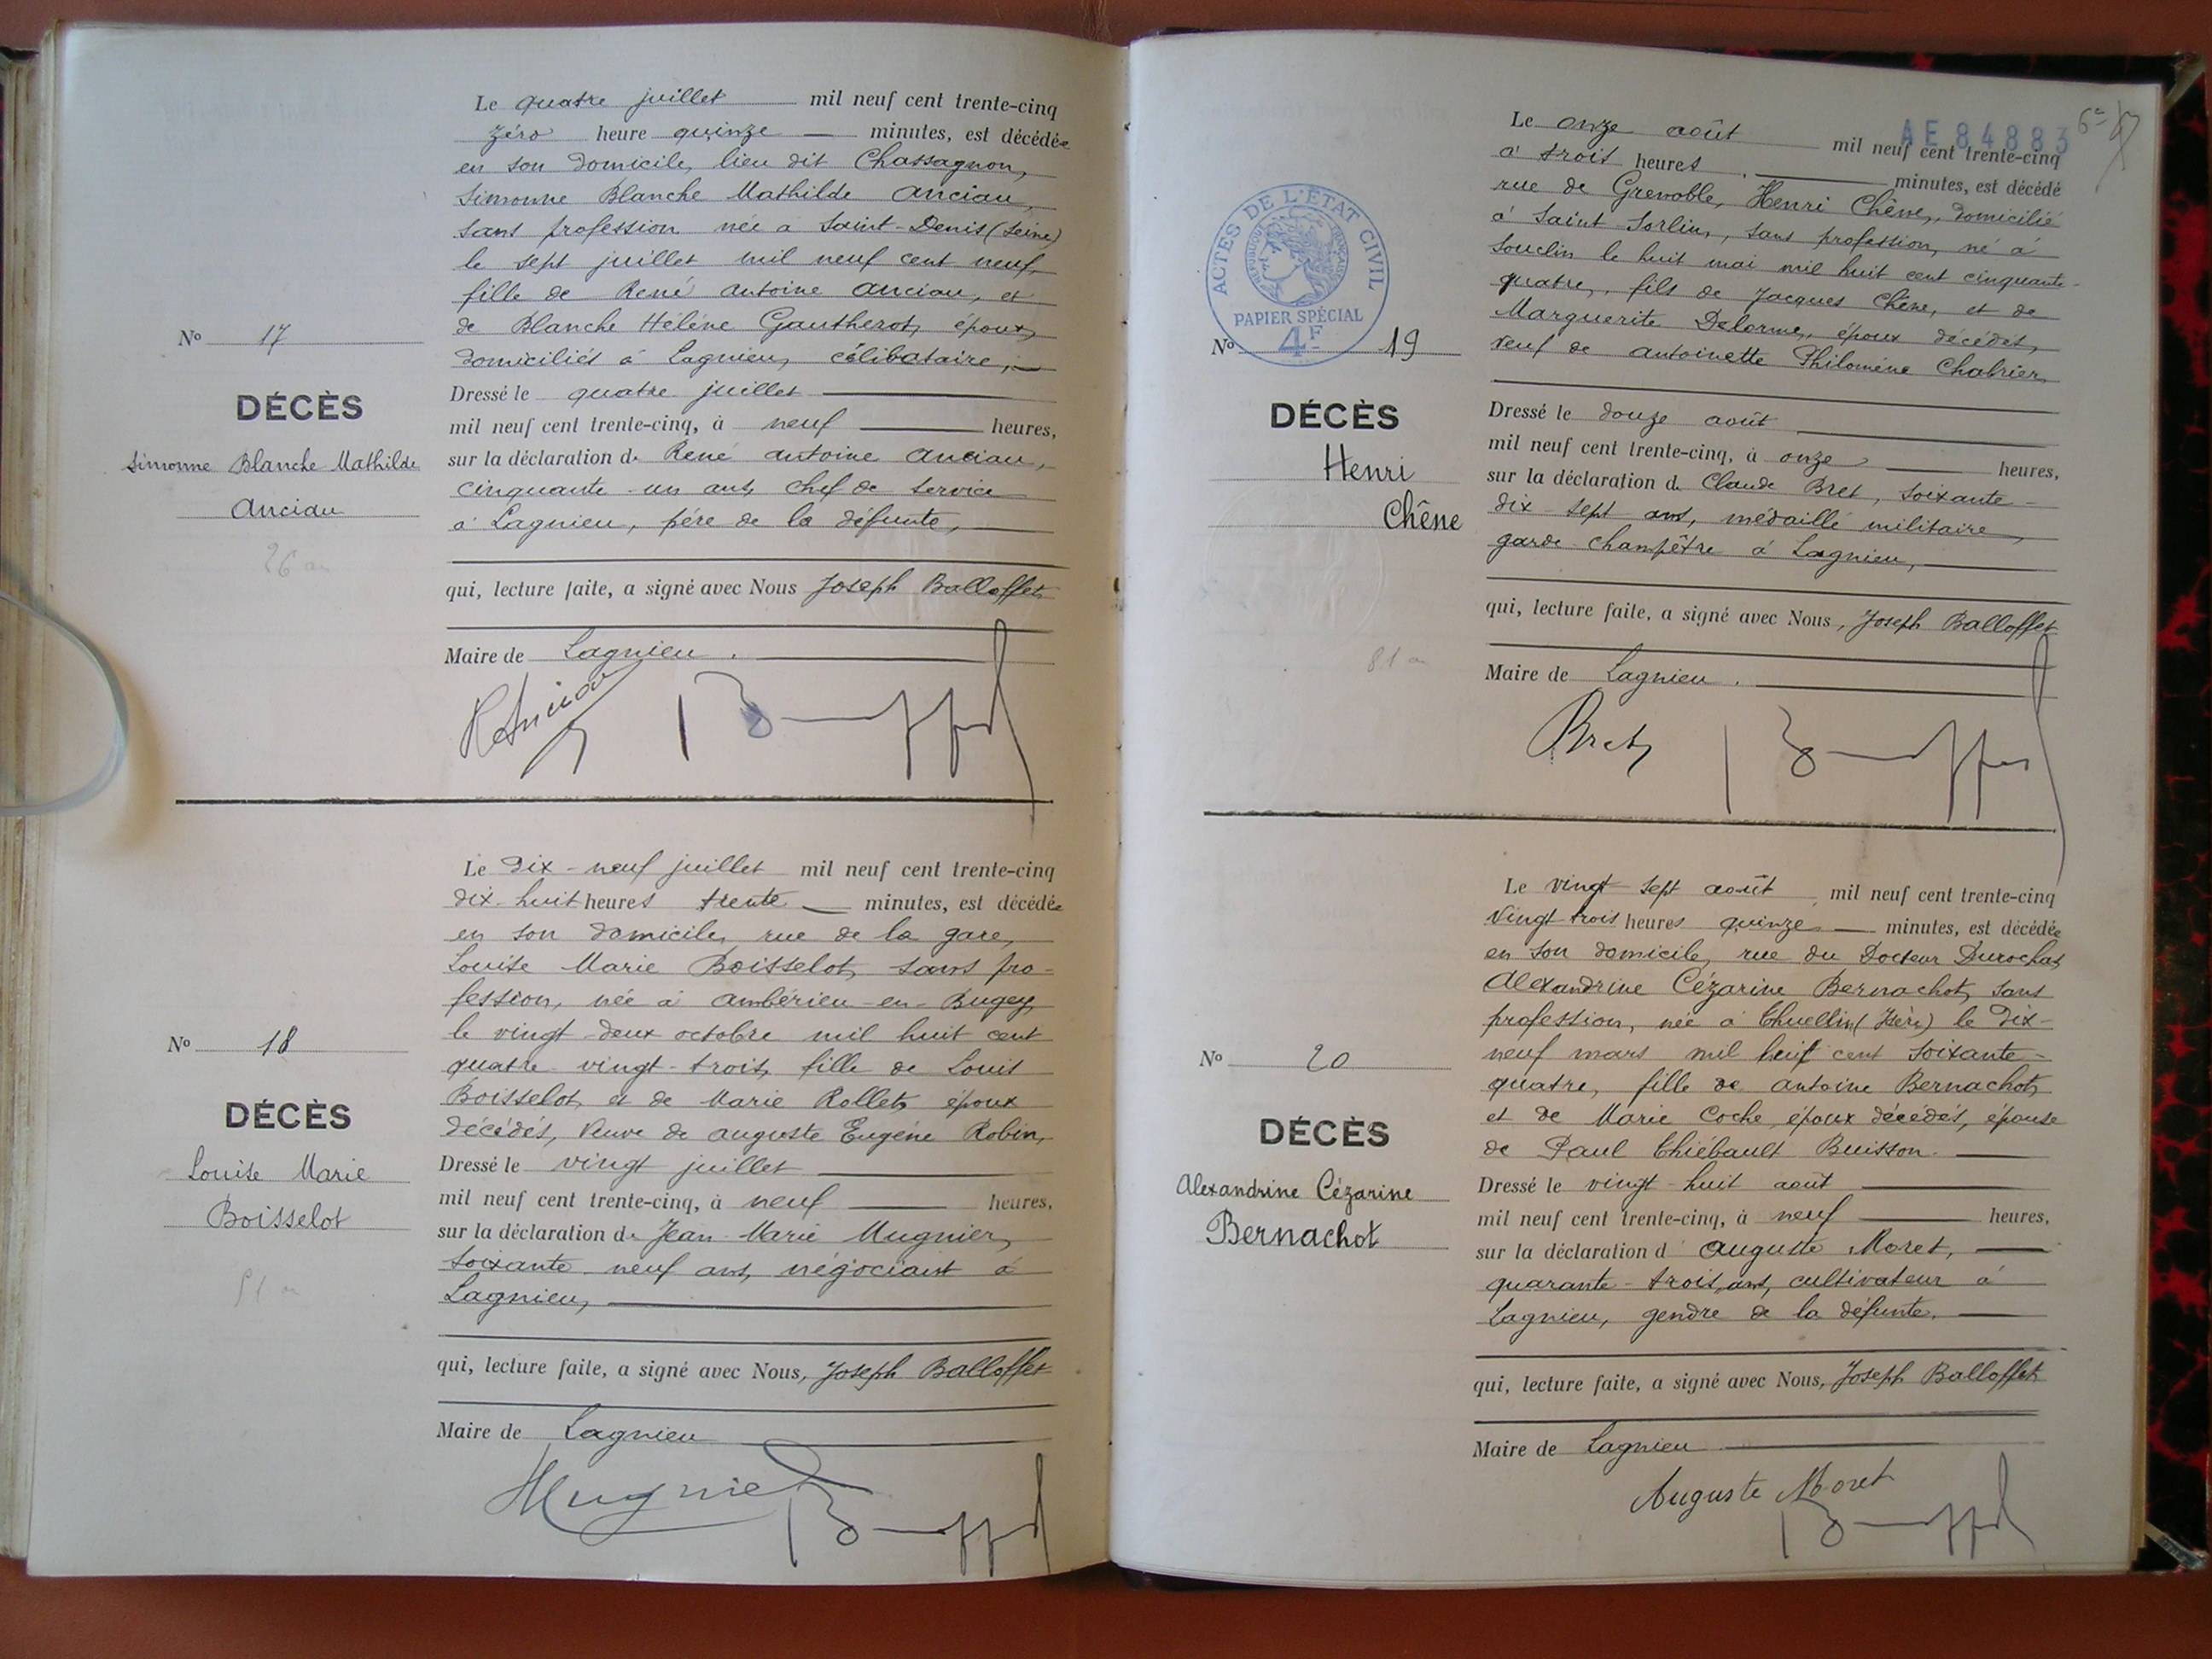 Le quatre juillet mil neuf cent trente-cinq
zéro heure quinze minutes, est décédée
en son domicile, lieu dit Chassagnon,
Simonne Blanche Mathilde Anciau,
sans profession née à Saint-Denis (Seine)
le sept juillet mil neuf cent neuf,
fille de René Antoine Anciau, et
de Blanche Hélène Gautherot, époux,
domiciliés à Lagnieu, célibataire,
No 17
DÉCÈS
Simonne Blanche Mathilde
Anciau
26 an
Dressé le quatre juillet
mil neuf cent trente-cinq, à neuf heures,
sur la déclaration de René Antoine Anciau,
cinquante-un ans, chef de service
à Lagnieu, père de la défunte,
qui, lecture faite, a signé avec Nous Joseph Balloffet
Maire de Lagnieu.
Le dix-neuf juillet mil neuf cent trente-cinq
dix-huit heures trente minutes, est décédée
en son domicile, rue de la gare,
Louise Marie Boisselot, sans pro-
fession, née à Ambérieu-en-Bugey,
le vingt-deux octobre mil huit cent
quatre vingt-trois, fille de Louis
Boisselot, et de Marie Rollet, époux
décédés, Veuve de Auguste Eugène Robin,
No 18
DÉCÈS
Louise Marie
Boisselot
51 an
Dressé le vingt juillet
mil neuf cent trente-cinq, à neuf heures,
sur la déclaration de Jean-Marie Mugnier,
soixante-neuf ans, négociant à
Lagnieu,
qui, lecture faite, a signé avec Nous, Joseph Balloffet
Maire de Lagnieu
Mugnier
AE 84883
Le onze août mil neuf cent trente-cinq
à trois heures minutes, est décédé
rue de Grenoble, Henri Chêne, domicilié
à Saint-Sorlin, sans profession, né à
Souclin le huit mai mil huit cent cinquante-
quatre, fils de Jacques Chêne, et de
Marguerite Delorme, époux décédés,
veuf de Antoinette Philomène Chabrier,
ACTES DE L'ÉTAT CIVIL
RÉPUBLIQUE FRANÇAISE
PAPIER SPÉCIAL
4F
No 19
DÉCÈS
Henri
Chêne
81 an
Dressé le douze août
mil neuf cent trente-cinq, à onze heures,
sur la déclaration de Claude Bret, soixante-
dix-sept ans, médaillé militaire,
garde-champêtre à Lagnieu,
qui, lecture faite, a signé avec Nous, Joseph Balloffet
Maire de Lagnieu.
Bret
Le vingt-sept août mil neuf cent trente-cinq
Vingt-trois heures quinze minutes, est décédée
en son domicile, rue du Docteur Durochat
Alexandrine Cézarine Bernachot, sans
profession, née à Chuellin (Isère) le dix-
neuf mars mil huit cent soixante-
quatre, fille de Antoine Bernachot,
et de Marie Coche, époux décédés, épouse
de Paul Thiébault Buisson.
No 20
DÉCÈS
Alexandrine Cézarine
Bernachot
Dressé le vingt-huit août
mil neuf cent trente-cinq, à neuf heures,
sur la déclaration d' Auguste Moret,
quarante-trois ans, cultivateur à
Lagnieu, gendre de la défunte.
qui, lecture faite, a signé avec Nous, Joseph Balloffet
Maire de Lagnieu
Auguste Moret